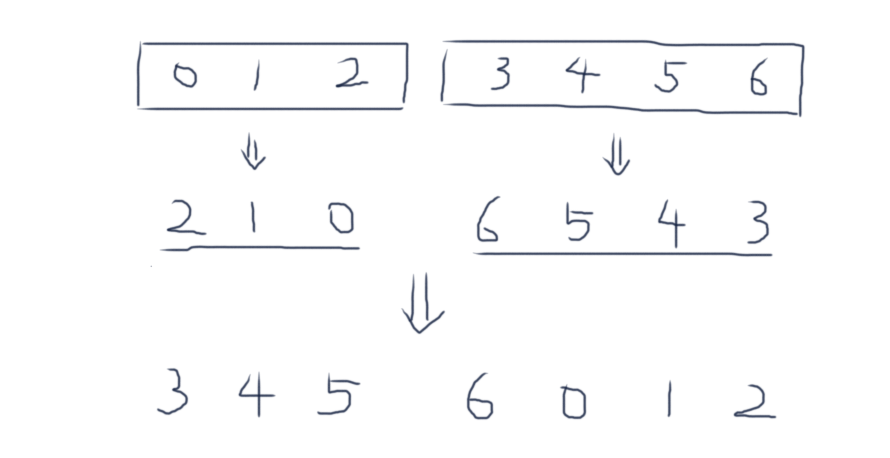 0 1 2 3 4 5 6
2 1 0 6 5 4 3
3 4 5 6 0 1 2